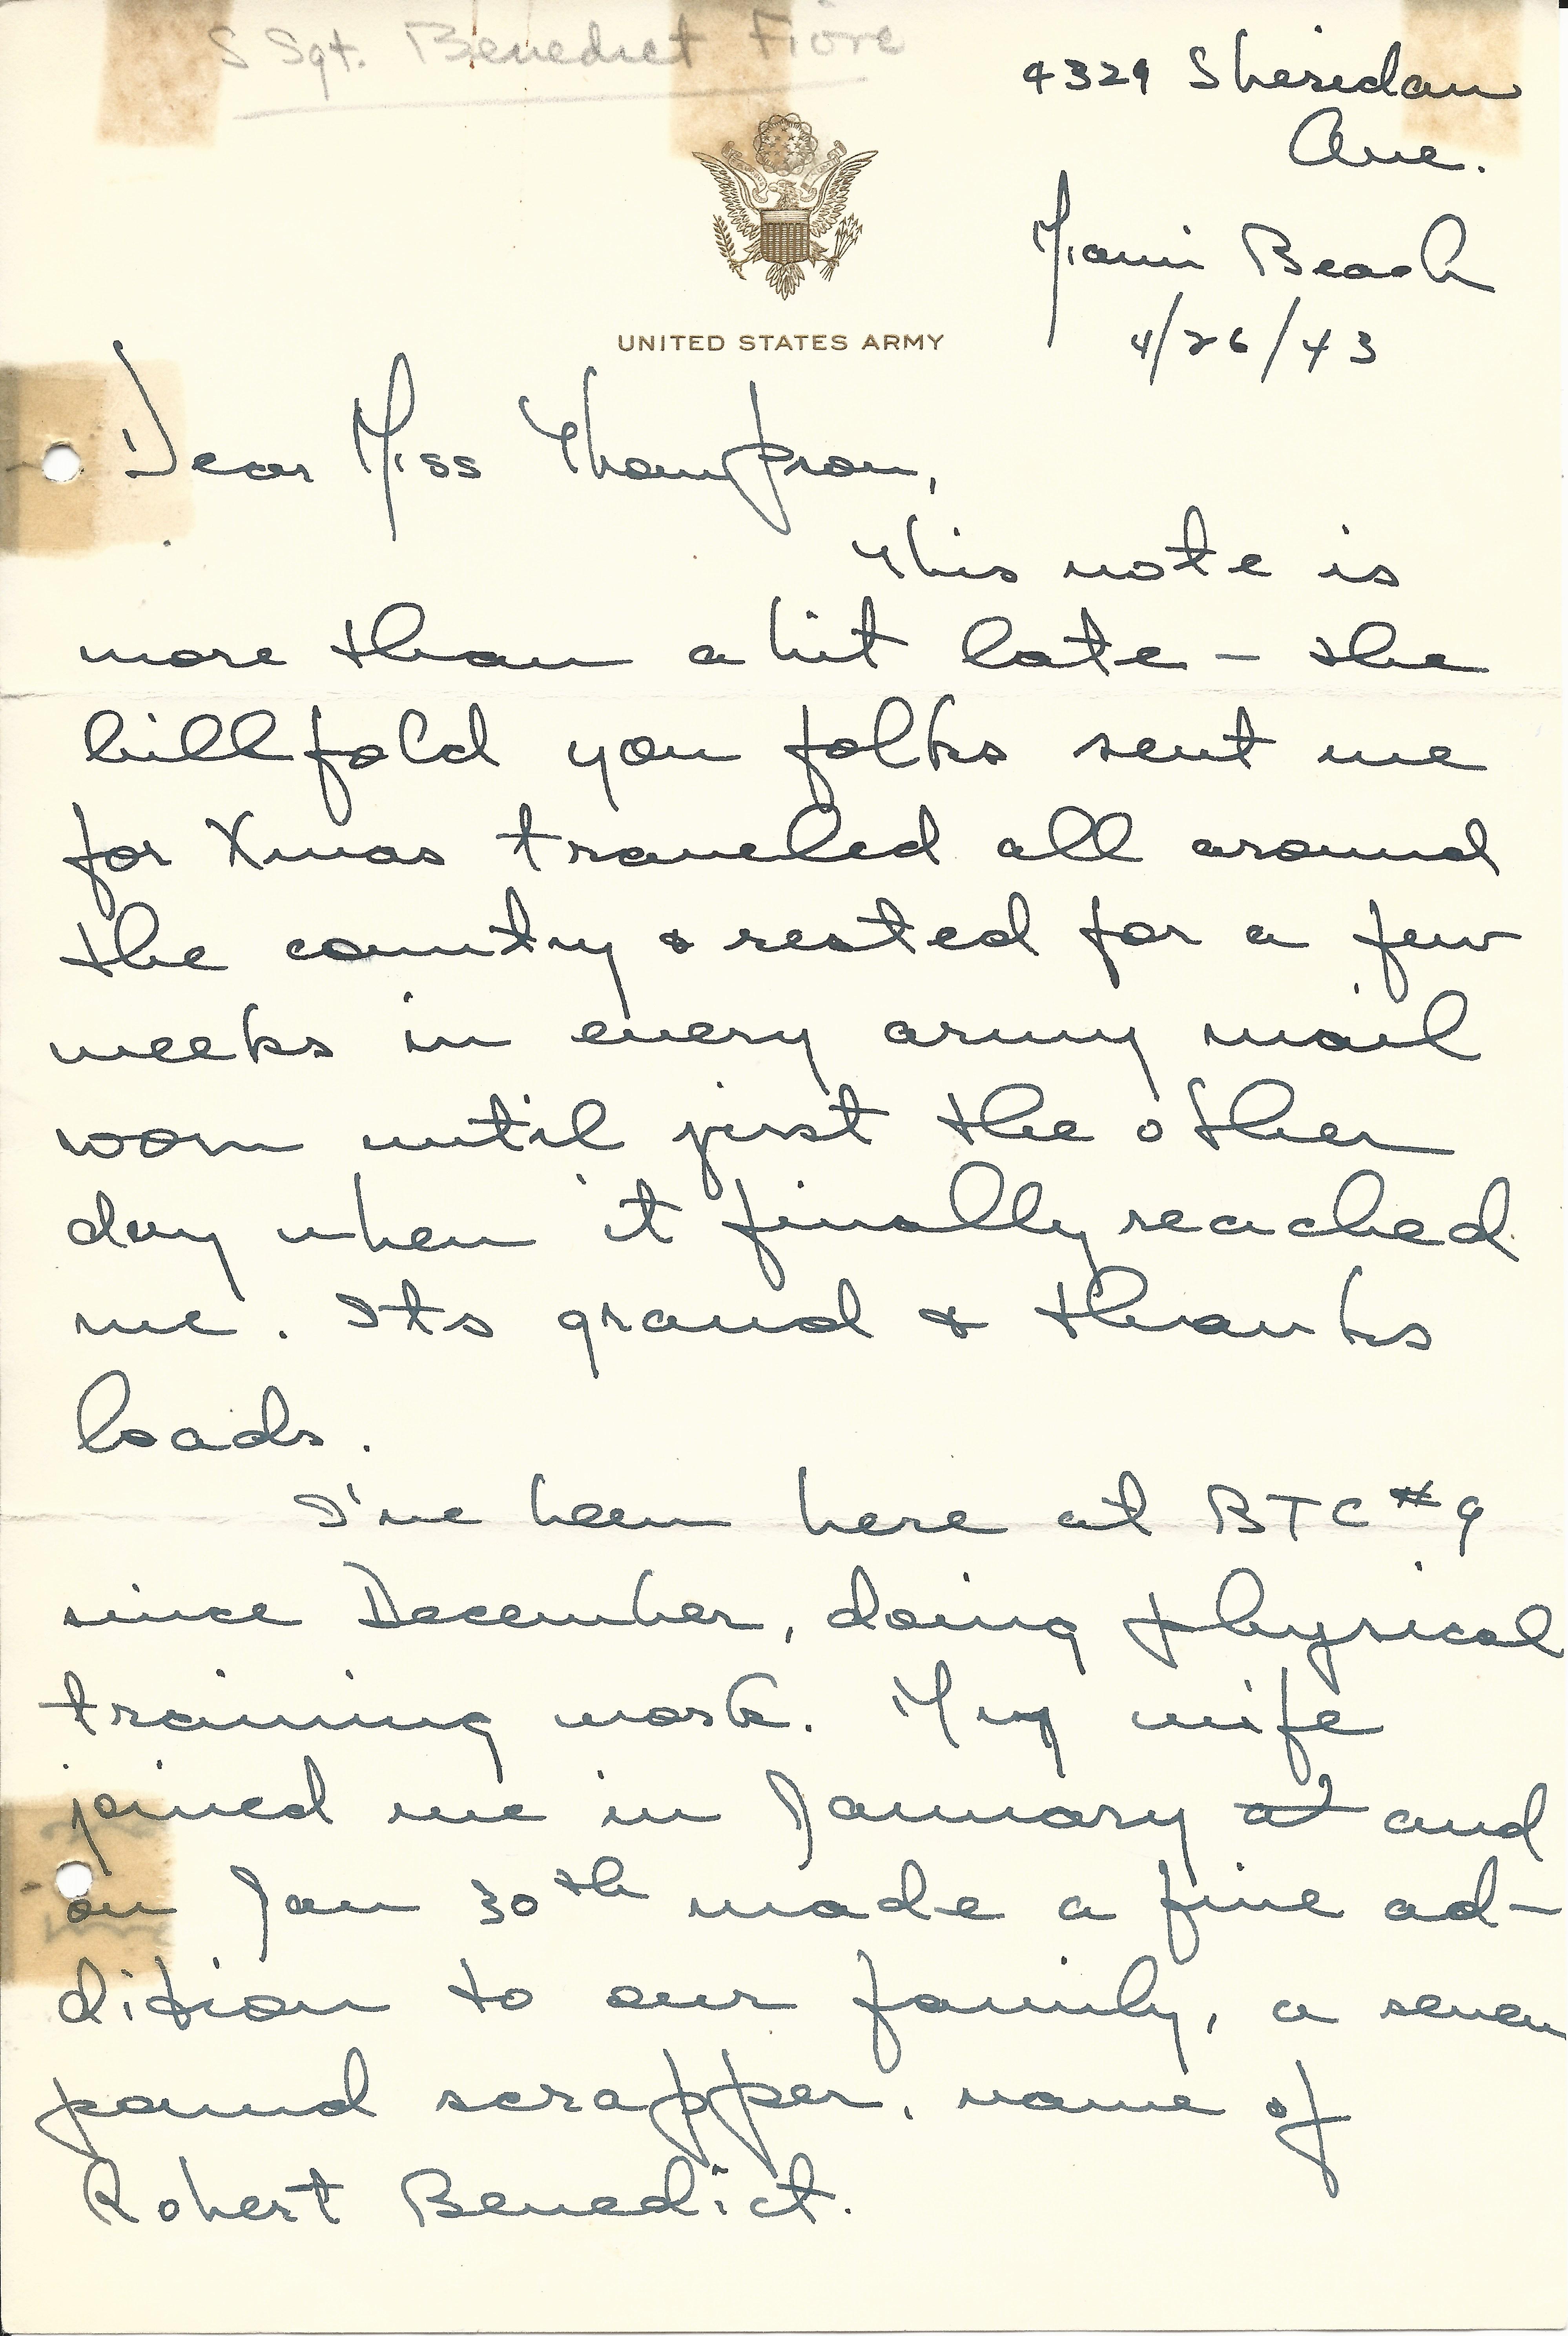 S Sgt. Benedict Fiore
4329 Sheridan
Ave.
Miami Beach
4/26/43
UNITED STATES ARMY
Dear Miss Thompson,
This note is
more than a bit late – the
billfold you folks sent me
for Xmas traveled all around
the country & rested for a few
weeks in every army mail
room until just the other
day when it finally reached
me. Its grand & thanks
loads.
I've been here at BTC #9
since December, doing physical
training work. My wife
joined me in January at and
on Jan 30th made a fine ad-
dition to our family, a seven
pound scrapper, name of
Robert Benedict.